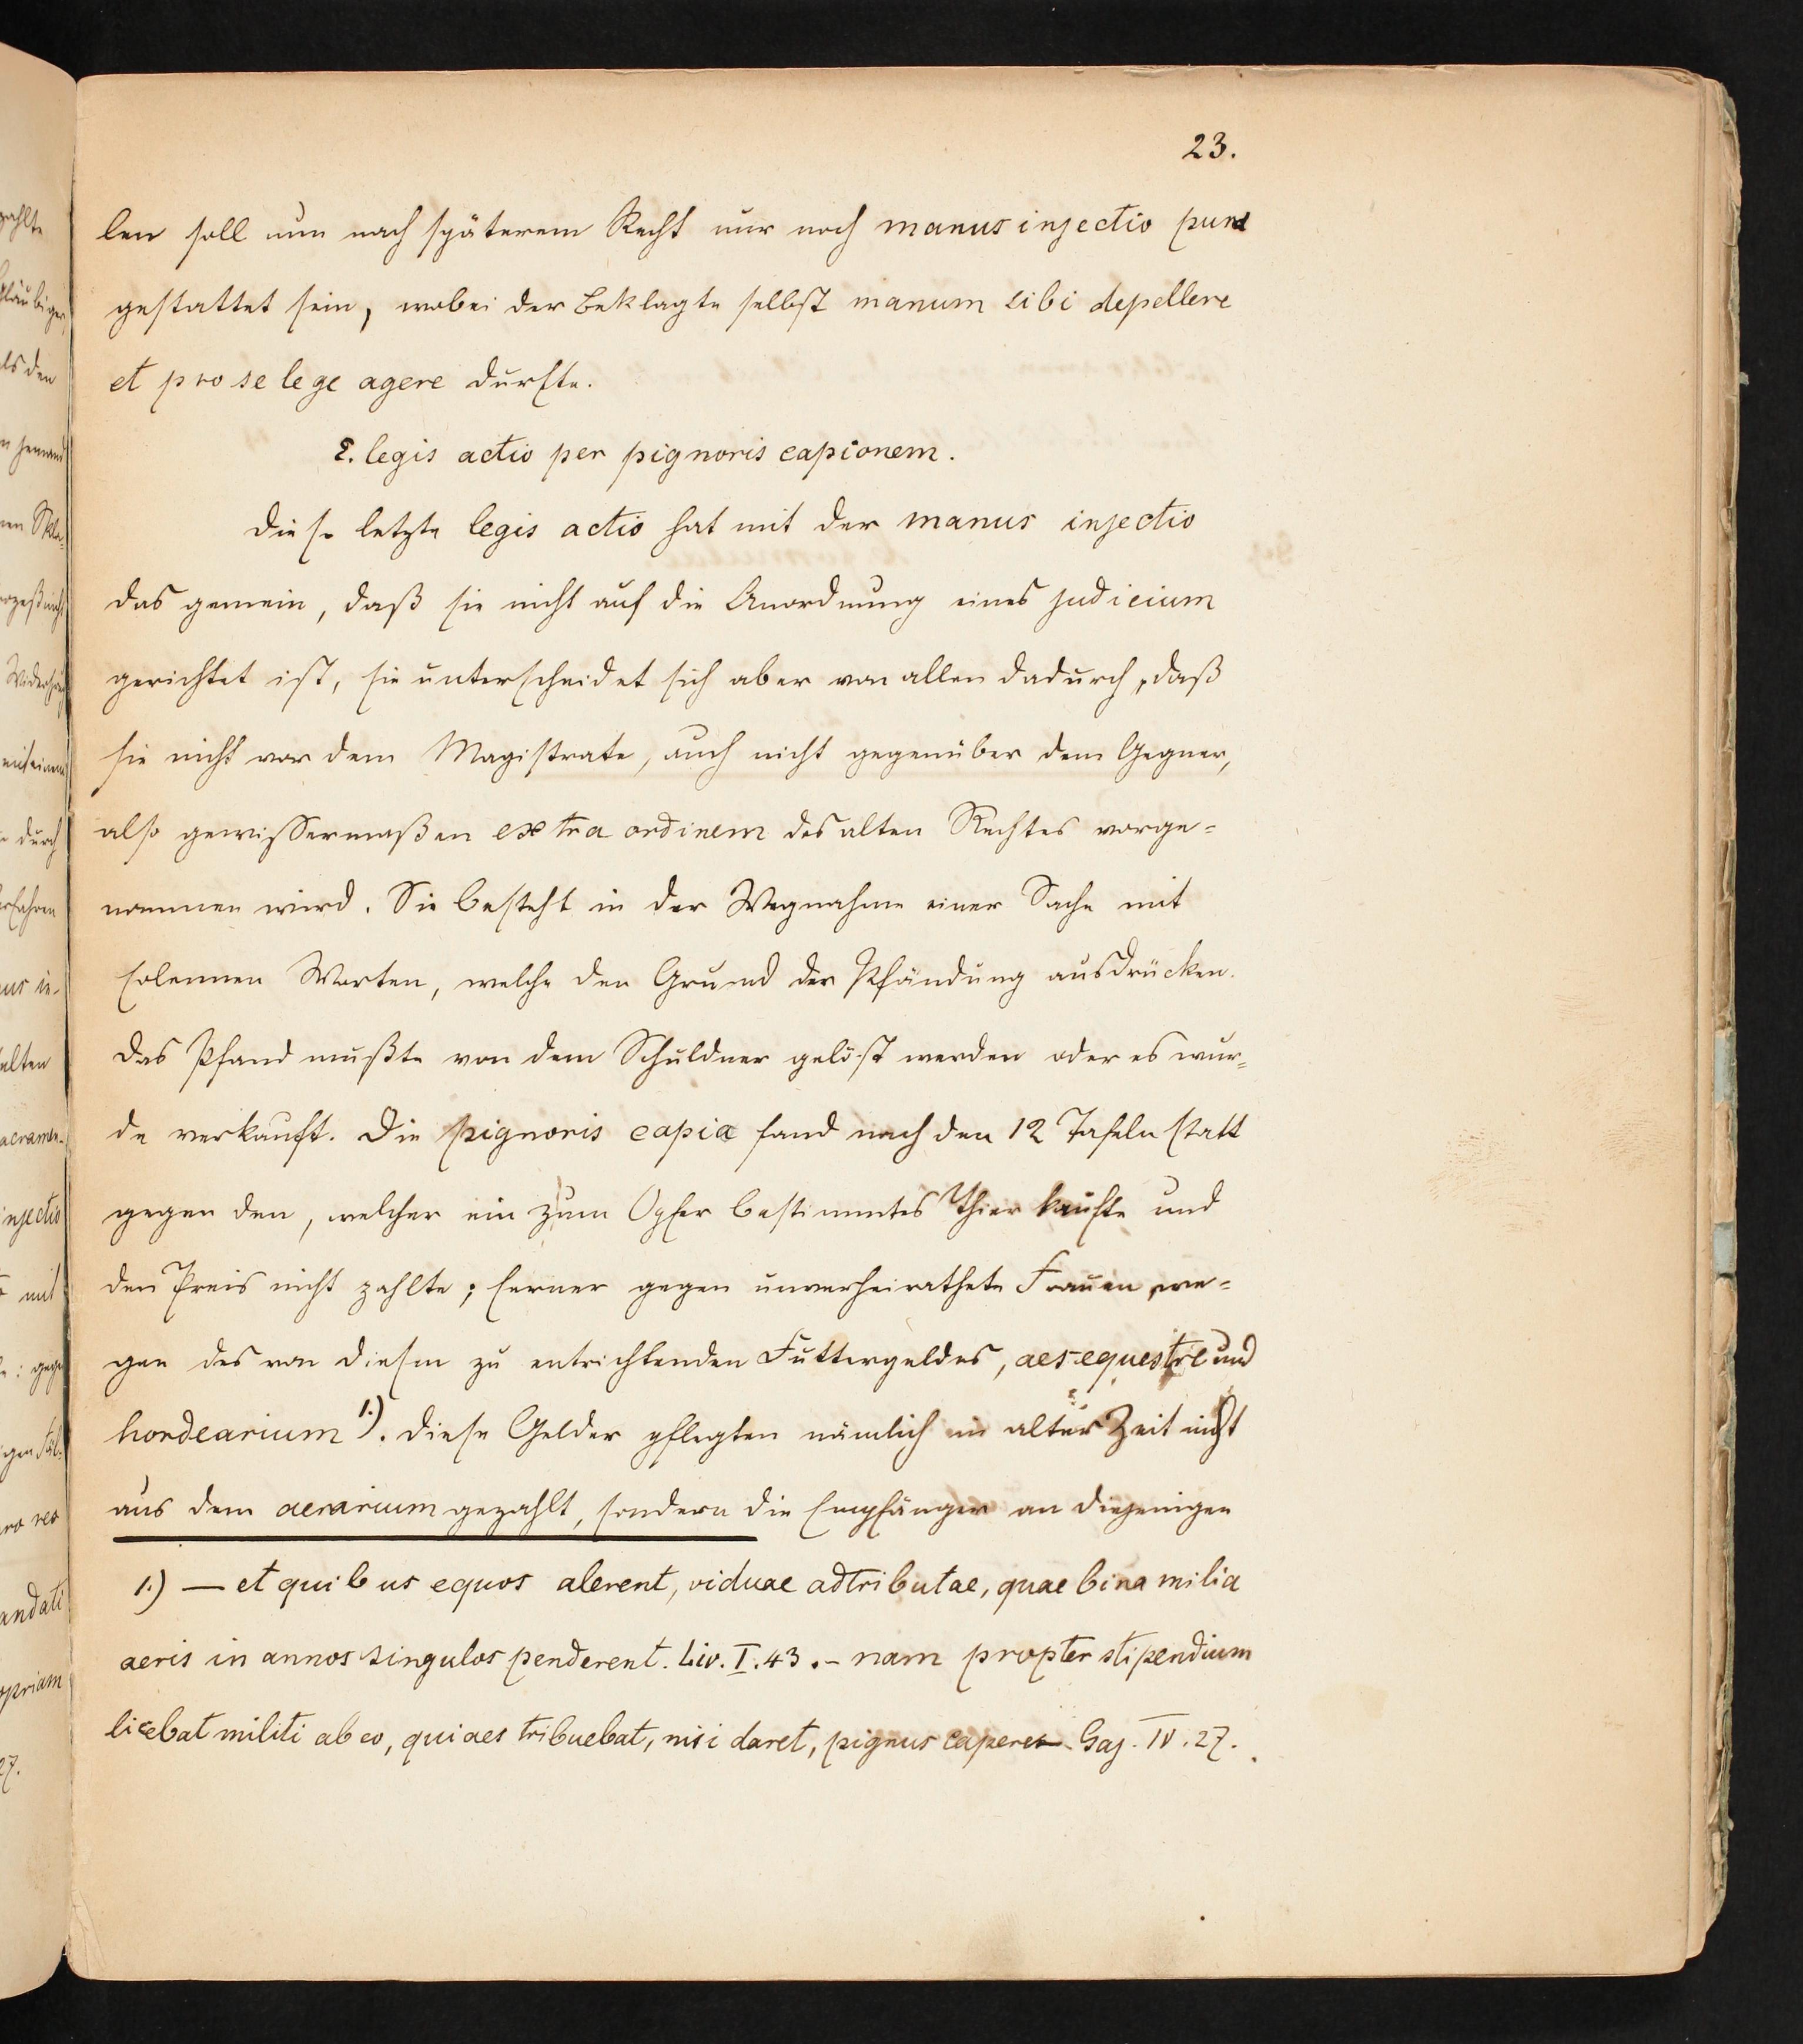 23.
len soll nun nach späterem Recht nur noch manus injectio pura
gestattet sein, wobei der Beklagte selbst manum sibi depellere
et pro se lege agere durfte.
E. legis actio per pignoris capionem.
Diese letzte legis actio hat mit der manus injectio
das gemein, daß sie nicht auf die Anordnung eines judicium
gerichtet ist, sie unterscheidet sich aber von allen dadurch, daß
sie nicht vor dem Magistrate, auch nicht gegenüber dem Gegner,
also gewissermaßen extra ordinem des alten Rechtes vorge=
nommen wird. Sie besteht in der Wegnahme einer Sache mit
solennen Worten, welche den Grund der Pfändung ausdrücken.
Das Pfand mußte von dem Schuldner gelöst werden oder es wur=
de verkauft. Die pignoris capio fand nach den 12 Tafeln statt
gegen den, welcher ein zum Opfer bestimmtes Thier kaufte und
den Preis nicht zahlte; ferner gegen unverheirathete Frauen we=
gen des von diesen zu entrichtenden Futtergeldes, aes equestre und
hordearium 1.). Diese Gelder pflegten nämlich in alter Zeit nicht
aus dem aerarium gezahlt, sondern die Empfänger an diejenigen
1.) — et quibus equos alerent, viduae adtributae, quae bina milia
aeris in annos singulos penderent. Liv. I. 43. – nam propter stipendium
licebat militi ab eo, qui aes tribuebat, nisi daret, pignus capere. Gaj. IV. 27.